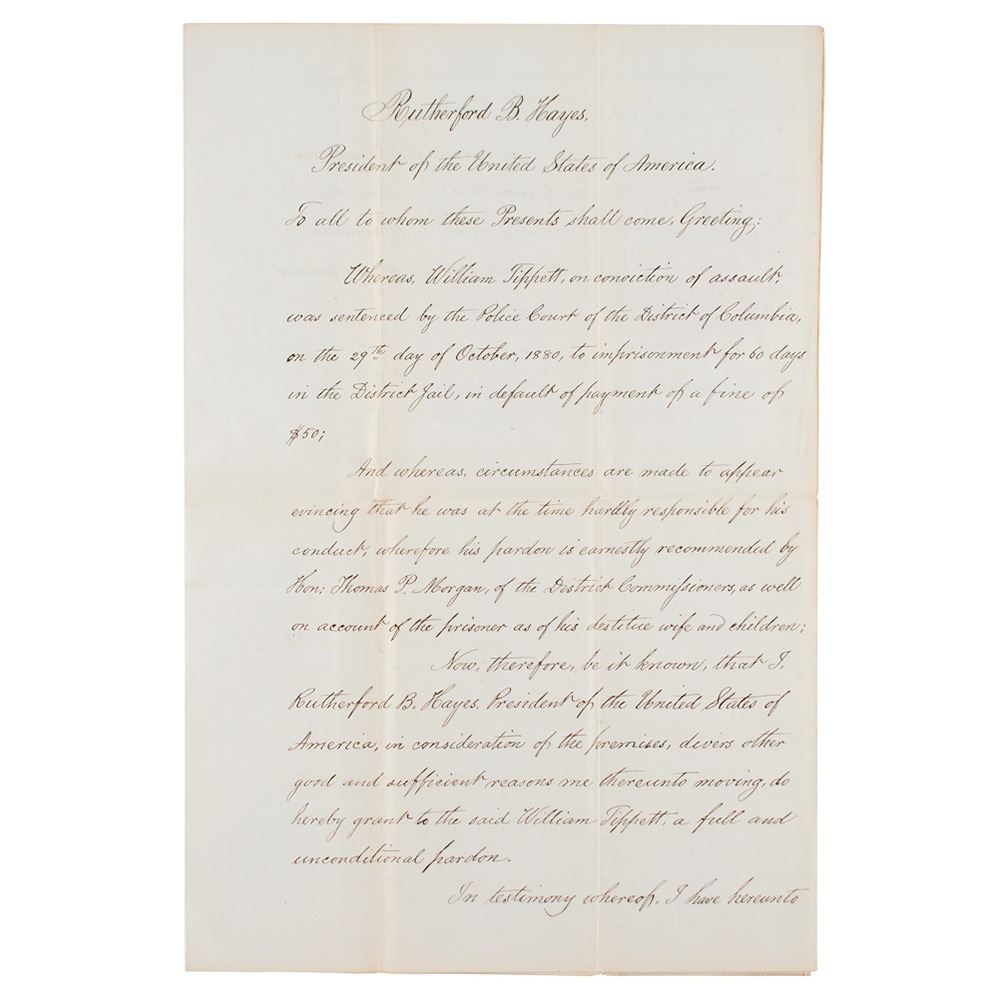 Rutherford B. Hayes,
President of the United States of America.
To all to whom these Presents shall come, Greeting:
Whereas, William Tippett, on conviction of assault,
was sentenced by the Police Court of the District of Columbia,
on the 29th day of October, 1880, to imprisonment for 60 days
in the District Jail, in default of payment of a fine of
$50;
And whereas, circumstances are made to appear
evincing that he was at the time hardly responsible for his
conduct, wherefore his pardon is earnestly recommended by
Hon: Thomas P. Morgan, of the District Commissioners, as well
on account of the prisoner as of his destitue wife and children;
Now, therefore, be it known, that I,
Rutherford B. Hayes, President of the United States of
America, in consideration of the premises, divers other
good and sufficient reasons me thereunto moving, do
hereby grant to the said William Tippett, a full and
unconditional pardon.
In testimony whereof, I have hereunto